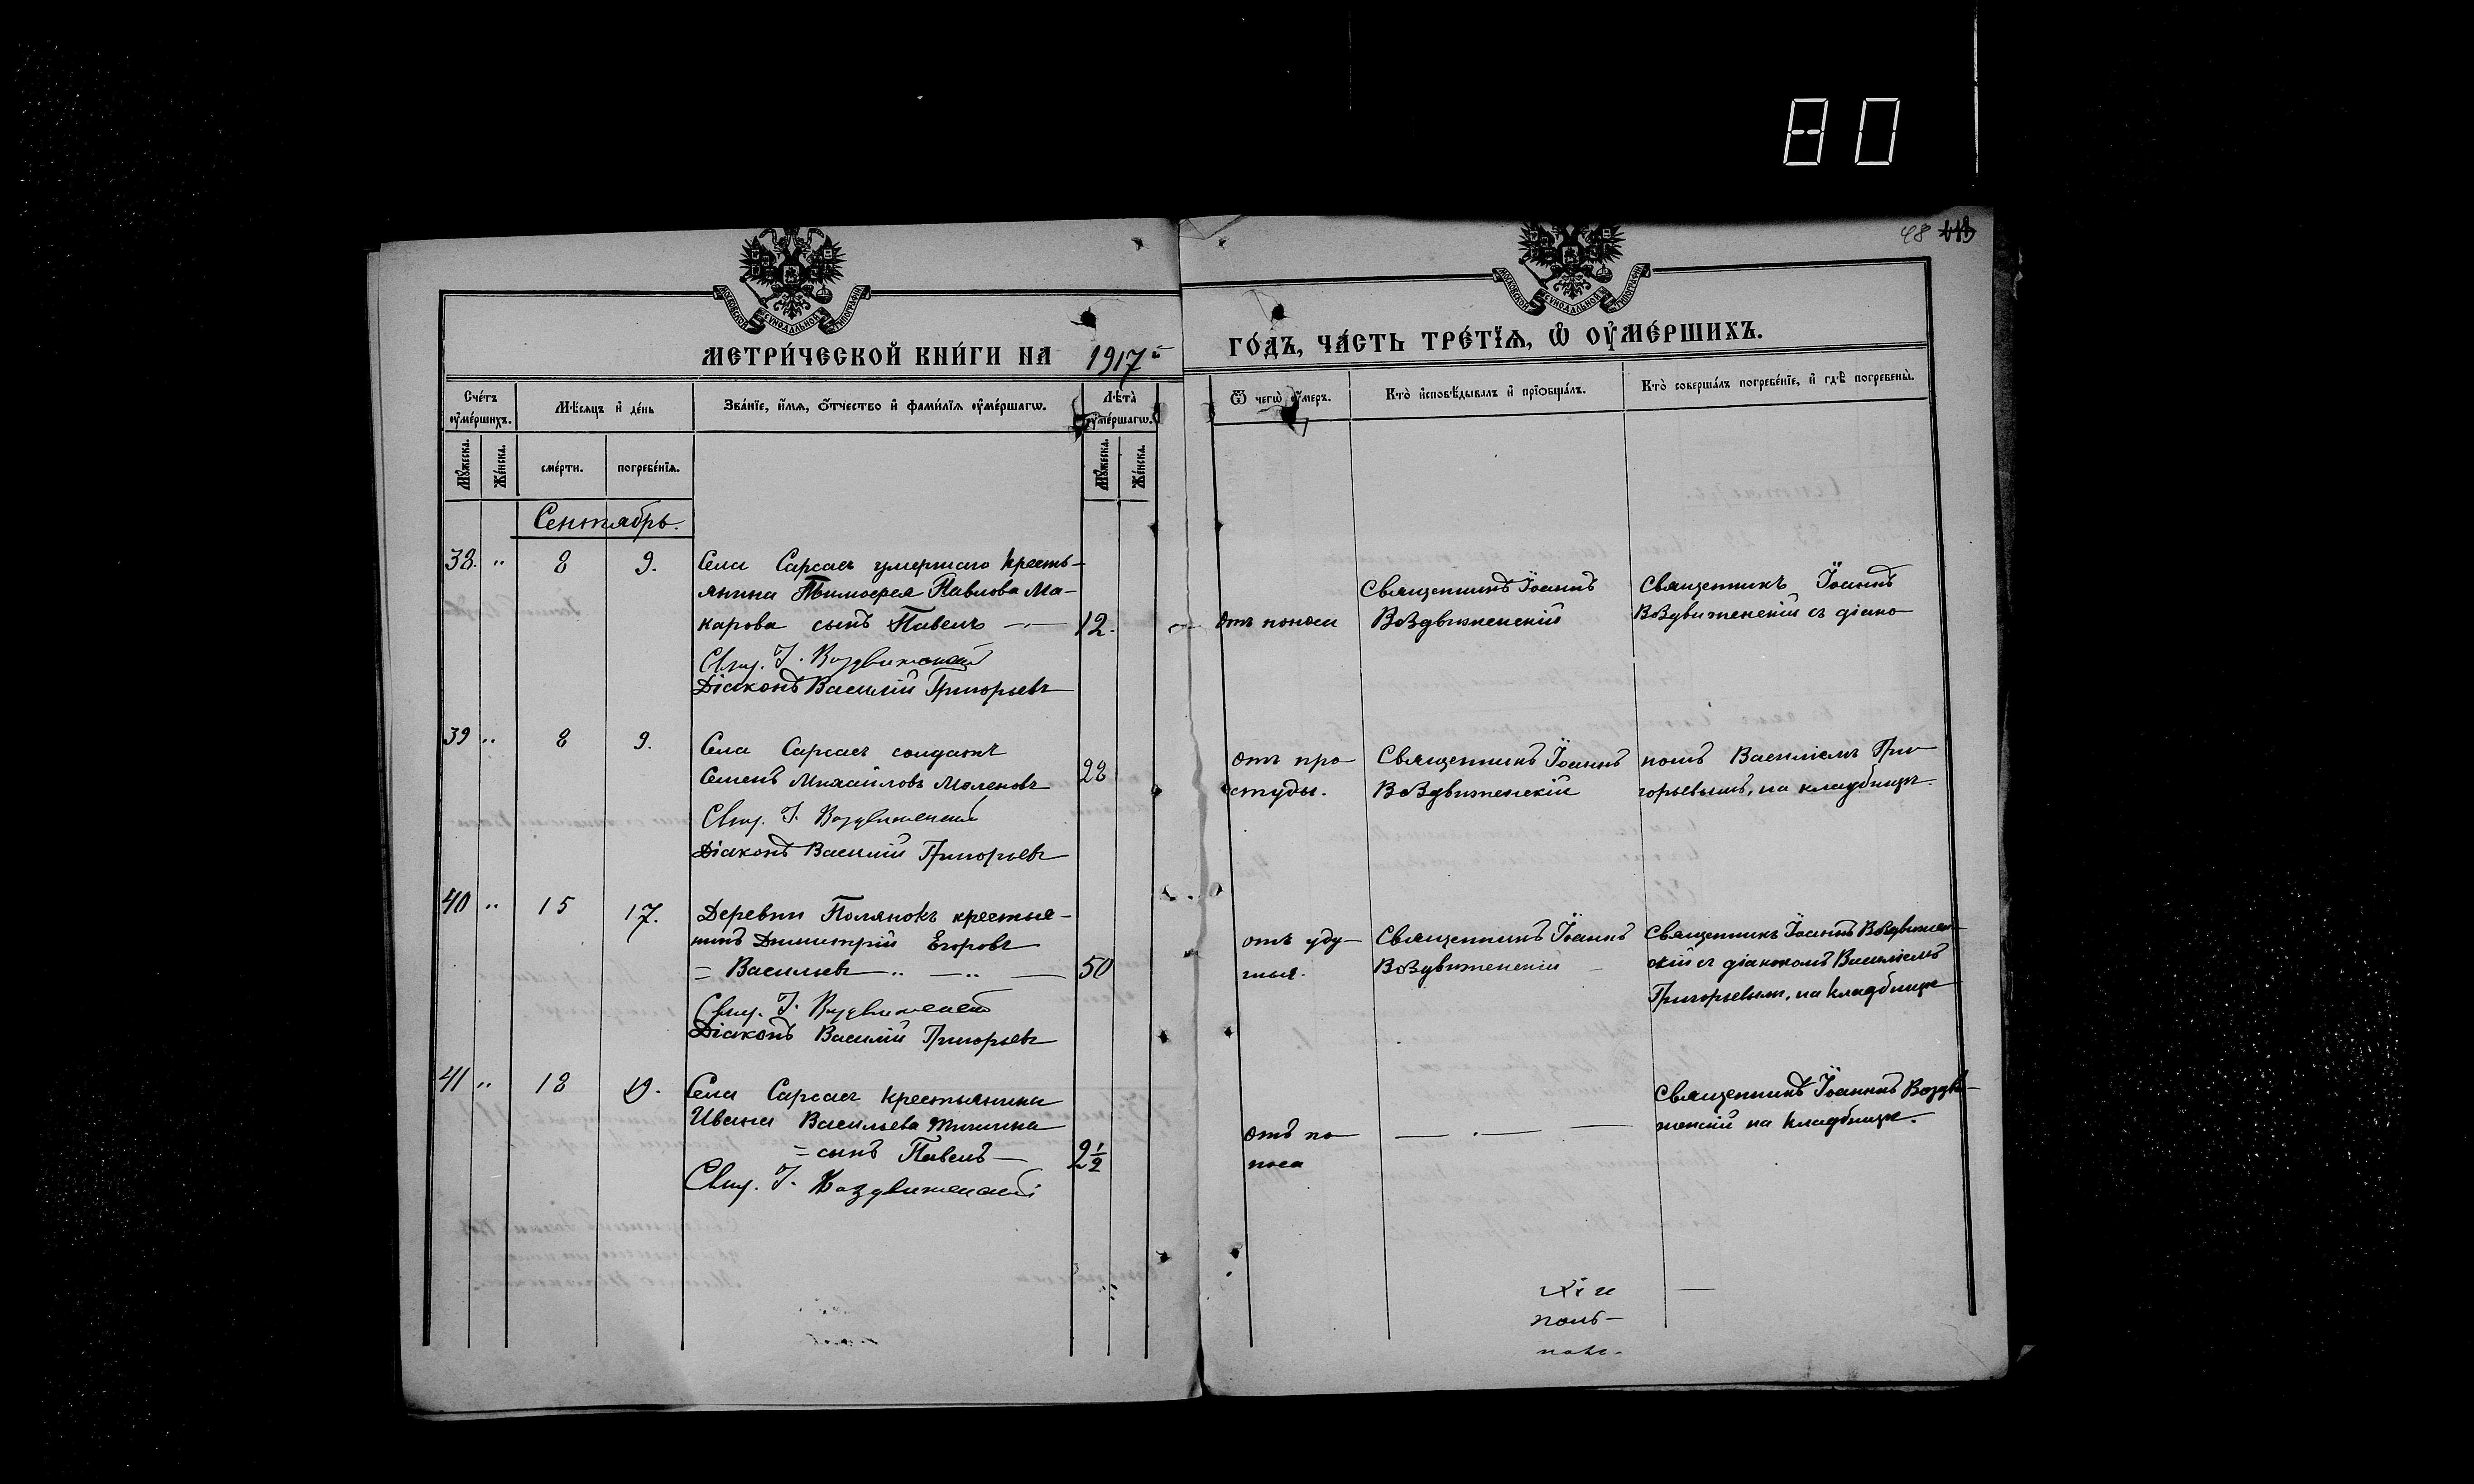 80
48
МОСКОВСКОЙ СѴНОДАЛЬНОЙ ТИПОГРАФІИ
МОСКОВСКОЙ СѴНОДАЛЬНОЙ ТИПОГРАФІИ
МЕТРИ́ЧЕСКОЙ КНИ́ГИ НА 1917й ГО́ДЪ, ЧА́СТЬ ТРЕ́ТЇѦ, Ѡ҆ ОУ҆МЕ́РШИХЪ.
Сче́тъ оу҆ме́ршихъ.
Мѣ́сяцъ и҆ де́нь
Зва́нїе, и҆́мѧ, ѻ҆́тчество и҆ фами́лїѧ оу҆ме́ршагѡ.
Лѣта̀ оу҆ме́ршагѡ.
Ѿ чегѡ̀ оу҆́меръ.
Кто̀ и҆сповѣ́дывалъ и҆ прїѻбща́лъ.
Кто̀ соверша́лъ погребе́нїе, и҆ гдѣ̀ погребены̀.
Мꙋ́жеска.
Же́нска.
сме́рти.
погребе́нїѧ.
Мꙋ́жеска.
Же́нска.
Сентябрь.
38. " 8 9. Села Сарсасъ умершаго кресть-
янина Тимофея Павлова Ма-
карова сынъ Павелъ 12.
Свящ. І. Воздвиженскій
Діаконъ Василій Григорьевъ
отъ поноса
Священникъ Іоаннъ
Воздвиженскій
Священникъ Іоаннъ
Воздвиженскій съ діако-
39 " 8 9. Села Сарсасъ солдатъ
Семенъ Михайловъ Моленовъ 28
Свящ. І. Воздвиженскій
Діаконъ Василій Григорьевъ
отъ про-
студы.
Священникъ Іоаннъ
Воздвиженскій
номъ Василіемъ Гри-
горьевымъ, на кладбищѣ.
40 " 15 17. Деревни Полянокъ крестья-
нинъ Димитрій Егоровъ
= Васильевъ 50
Свящ. І. Воздвиженскій
Діаконъ Василій Григорьевъ
отъ уду-
шья.
Священникъ Іоаннъ
Воздвиженскій
Священникъ Іоаннъ Воздвижен-
скій съ діакономъ Василіемъ
Григорьевымъ, на кладбищѣ
41 " 18 19. Села Сарсасъ крестьянина
Ивана Васильева
= сынъ Павелъ 2½
Свящ. І. Воздвиженскій
отъ по-
носа
Священникъ Іоаннъ Воздви-
женскій на кладбищѣ.